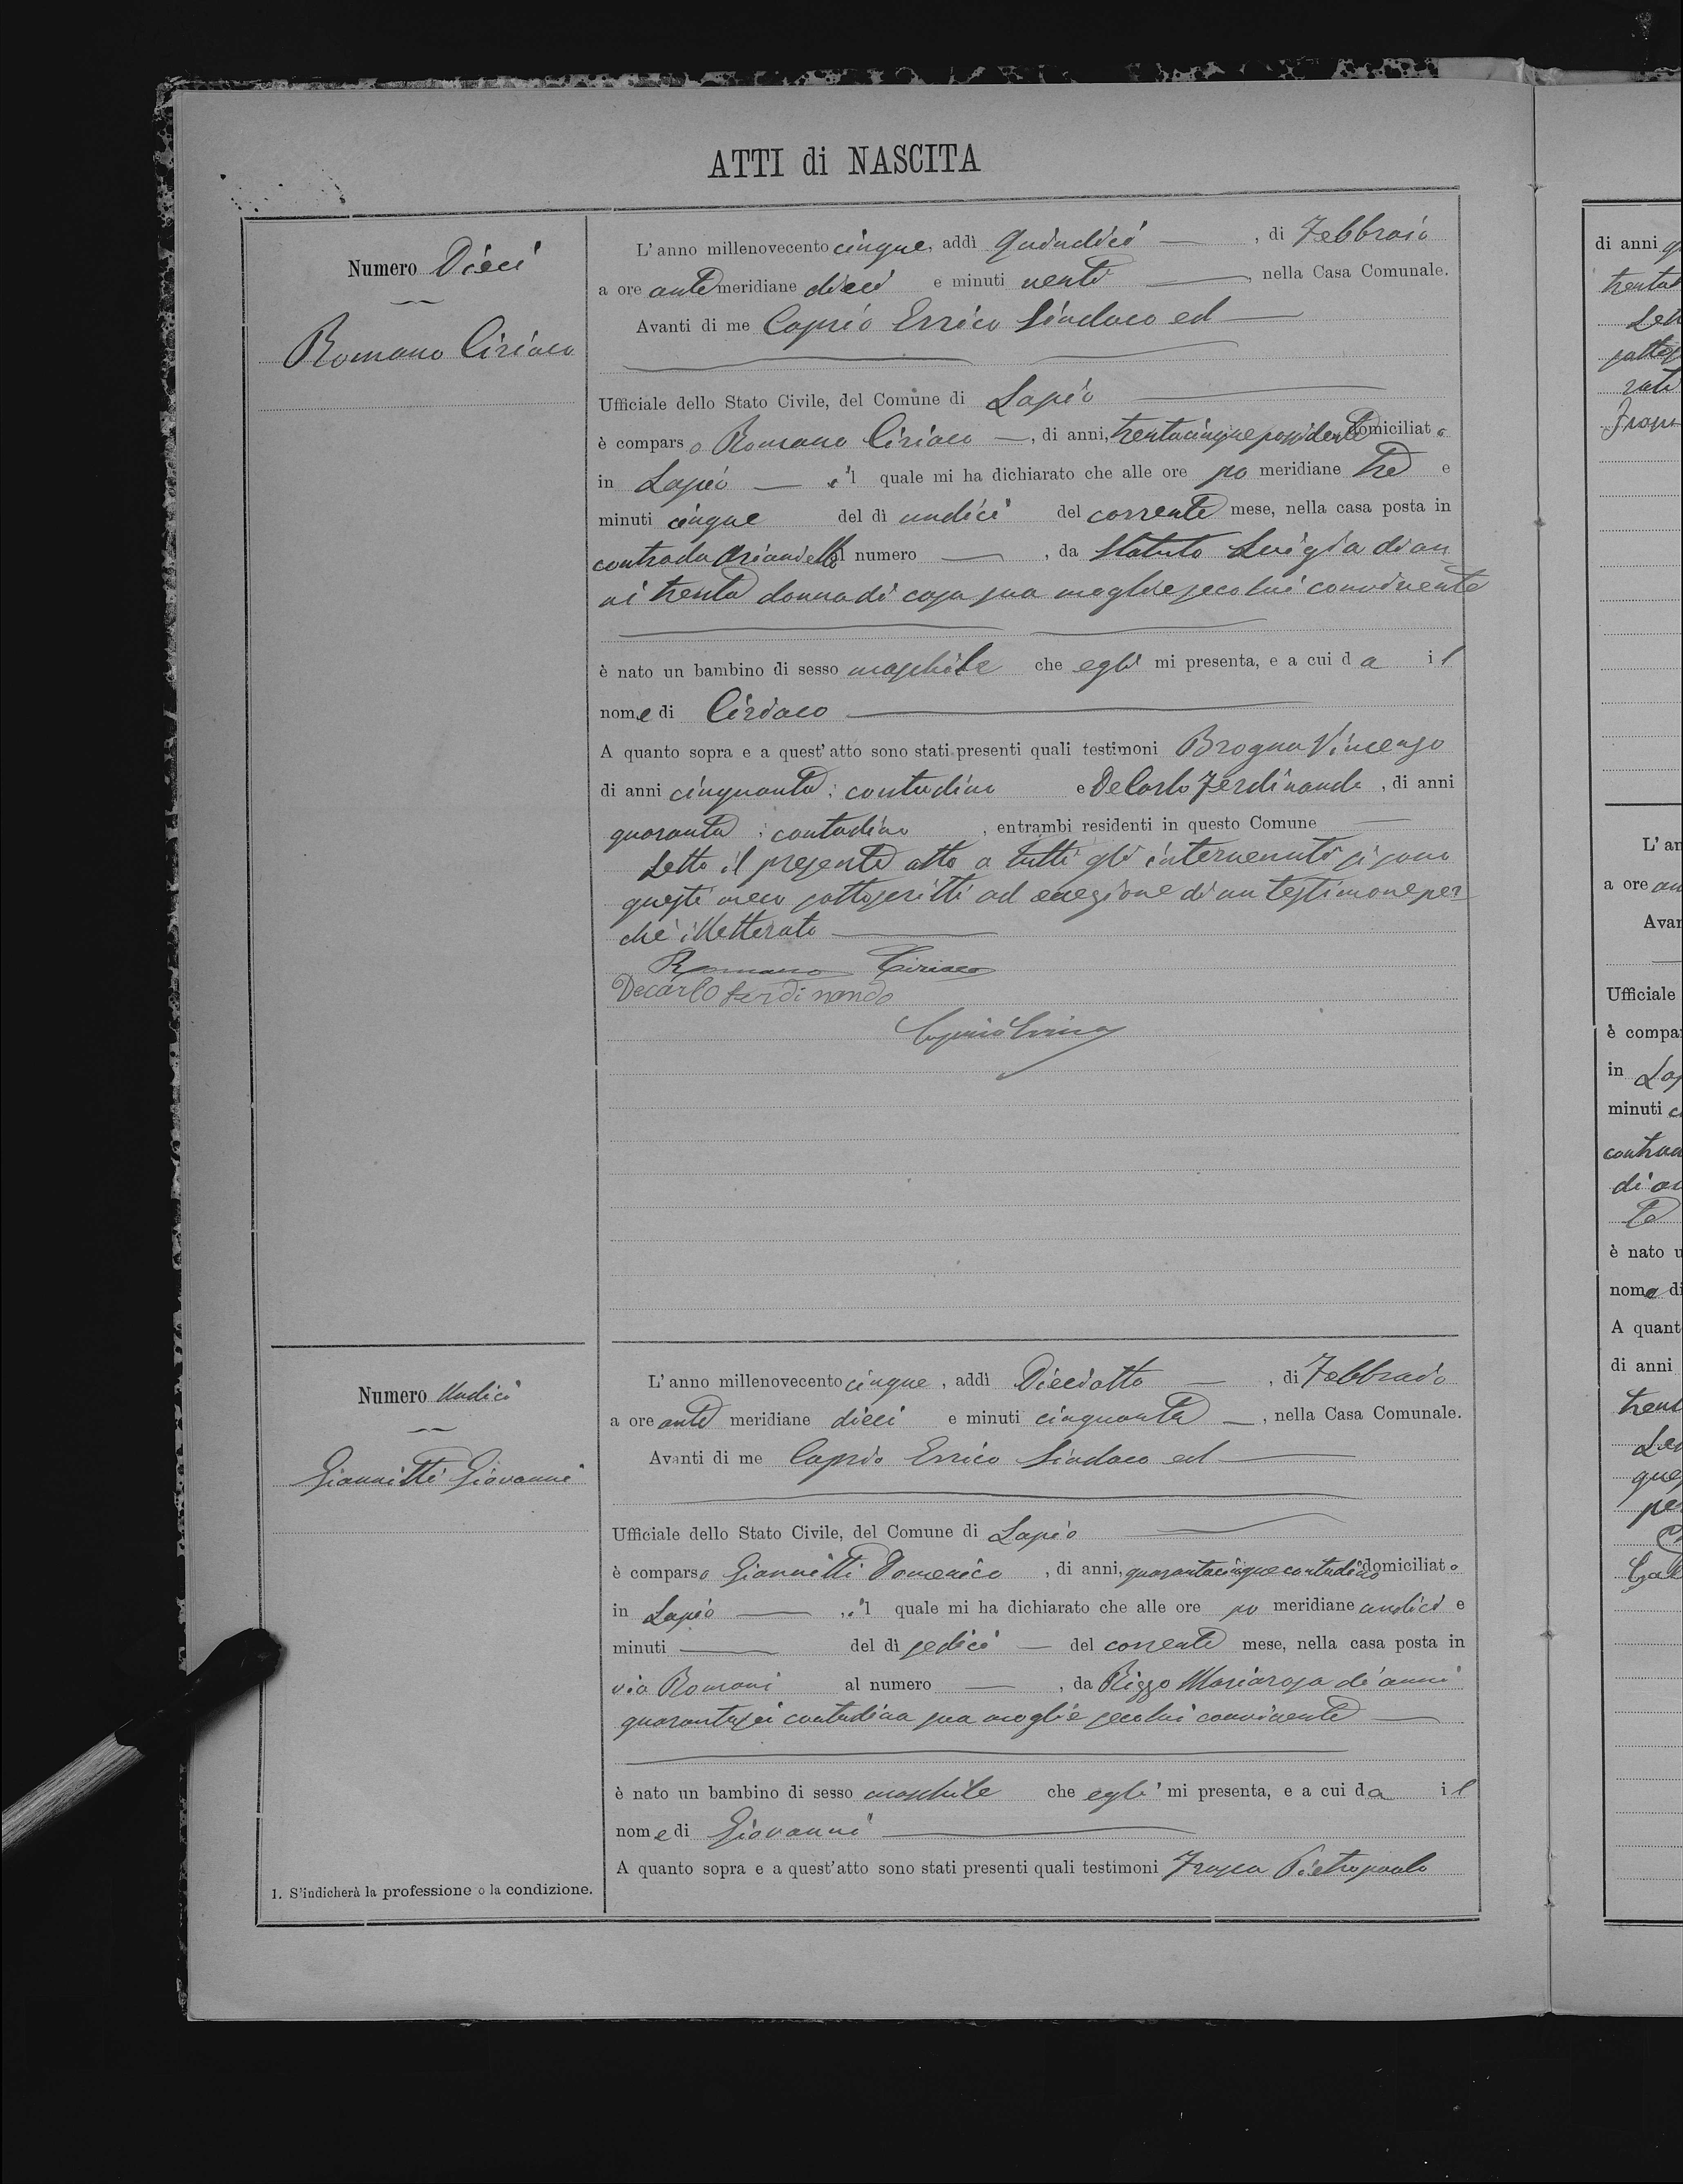 ATTI di NASCITA
Numero Dieci
Romano Ciriaco
L'anno millenovecento cinque, addì Quindici, di Febbraio
a ore antemeridiane dieci e minuti venti, nella Casa Comunale.
Avanti di me Caprio Errico Sindaco ed
Ufficiale dello Stato Civile, del Comune di Lapio
è comparso Romano Ciriaco, di anni, trentacinque possidente domiciliato
in Lapio, il quale mi ha dichiarato che alle ore po meridiane tre e
minuti cinque del dì undici del corrente mese, nella casa posta in
contrada Arianiello al numero, da Statuto Luigia di an
ni trenta donna di casa sua moglie seco lui convivente
è nato un bambino di sesso maschile che egli mi presenta, e a cui da il
nome di Ciriaco
A quanto sopra e a quest'atto sono stati presenti quali testimoni Brogna Vincenzo
di anni cinquanta; contadino e De Carlo Ferdinando, di anni
quaranta; contadino, entrambi residenti in questo Comune
Letto il presente atto a tutti gli intervenuti si sono
questi meco sottoscritti ad eccezione di un testimone per
chè illetterato
Romano Ciriaco
Decarlo ferdinando
Caprio Errico
Numero Undici
Giannitti Giovanni
L'anno millenovecento cinque, addì Dieciotto, di Febbraio
a ore ante meridiane dieci e minuti cinquanta, nella Casa Comunale.
Avanti di me Caprio Errico Sindaco ed
Ufficiale dello Stato Civile, del Comune di Lapio
è comparso Giannitti Domenico, di anni, quarantacinque contadino domiciliato
in Lapio, il quale mi ha dichiarato che alle ore po meridiane undici e
minuti del dì sedici del corrente mese, nella casa posta in
via Romani al numero, da Rizzo Mariarosa di anni
quarantasei contadina sua moglie seco lui convivente
è nato un bambino di sesso maschile che egli mi presenta, e a cui da il
nome di Giovanni
A quanto sopra e a quest'atto sono stati presenti quali testimoni Pietropaolo
1. S'indicherà la professione o la condizione.
di anni
L'an
a ore
Avan
Ufficiale
è compa
in
minuti
è nato
nome di
A quant
di anni